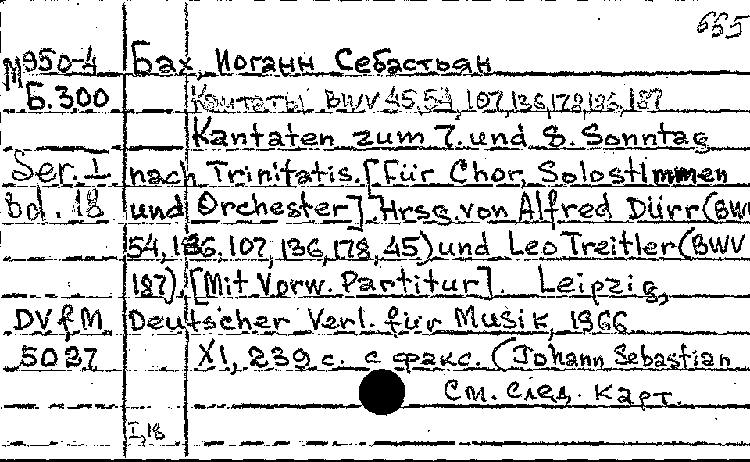 665
М950-4 Бах, Иоганн Себастьян
Б.300 Кантаты BWV 45,54,107,136,178,186,187
Kantaten zum 7. und 8. Sonntag
Ser. I nach Trinitatis. [Für Chor, Solostimmen
bd. 18 und Orchester] Hrsg. von Alfred Dürr (BWV
54, 186, 107, 136, 178, 45) und Leo Treitler (BWV
187). [Mit Vorw. Partitur]. Leipzig,
DVfM Deutscher Verl. für Musik, 1966
5027 XI, 239 с. с факс. (Johann Sebastian
См. след. карт.
I,18